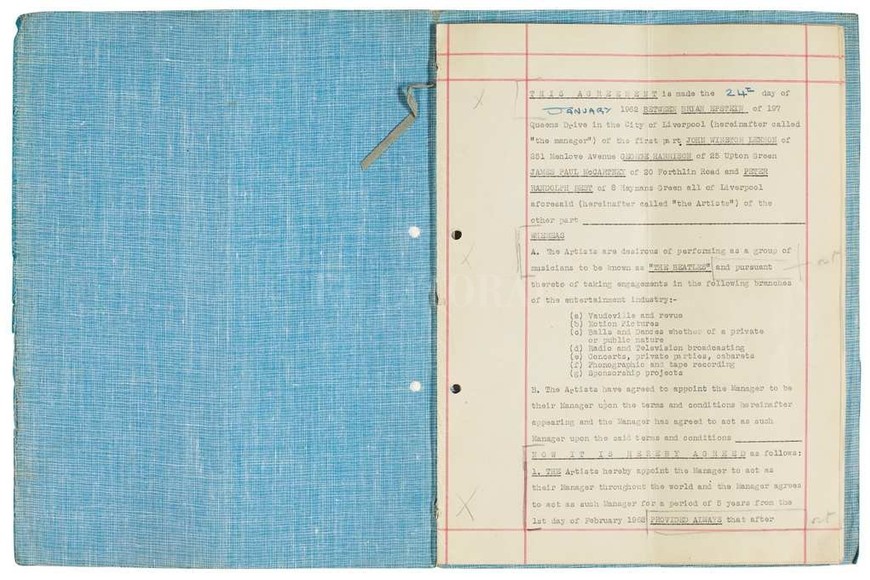 THIS AGREEMENT is made the 24th day of
JANUARY 1962 BETWEEN BRIAN EPSTEIN of 197
Queens Drive in the City of Liverpool (hereinafter called
"the manager") of the first part JOHN WINSTON LENNON of
251 Menlove Avenue GEORGE HARRISON of 25 Upton Green
JAMES PAUL McCARTNEY of 20 Forthlin Road and PETER
RANDOLPH BEST of 8 Haymans Green all of Liverpool
aforesaid (hereinafter called "the Artists") of the
other part
WHEREAS
A. The Artists are desirous of performing as a group of
musicians to be known as "THE BEATLES" and pursuant
thereto of taking engagements in the following branches
of the entertainment industry:-
(a) Vaudeville and revue
(b) Motion Pictures
(c) Balls and Dances whether of a private
or public nature
(d) Radio and Television broadcasting
(e) Concerts, private parties, cabarets
(f) Phonographic and tape recording
(g) Sponsorship projects
B. The Artists have agreed to appoint the Manager to be
their Manager upon the terms and conditions hereinafter
appearing and the Manager has agreed to act as such
Manager upon the said terms and conditions
NOW IT IS HEREBY AGREED as follows:
1. THE Artists hereby appoint the Manager to act as
their Manager throughout the world and the Manager agrees
to act as such Manager for a period of 5 years from the
1st day of February 1962 PROVIDED ALWAYS that after